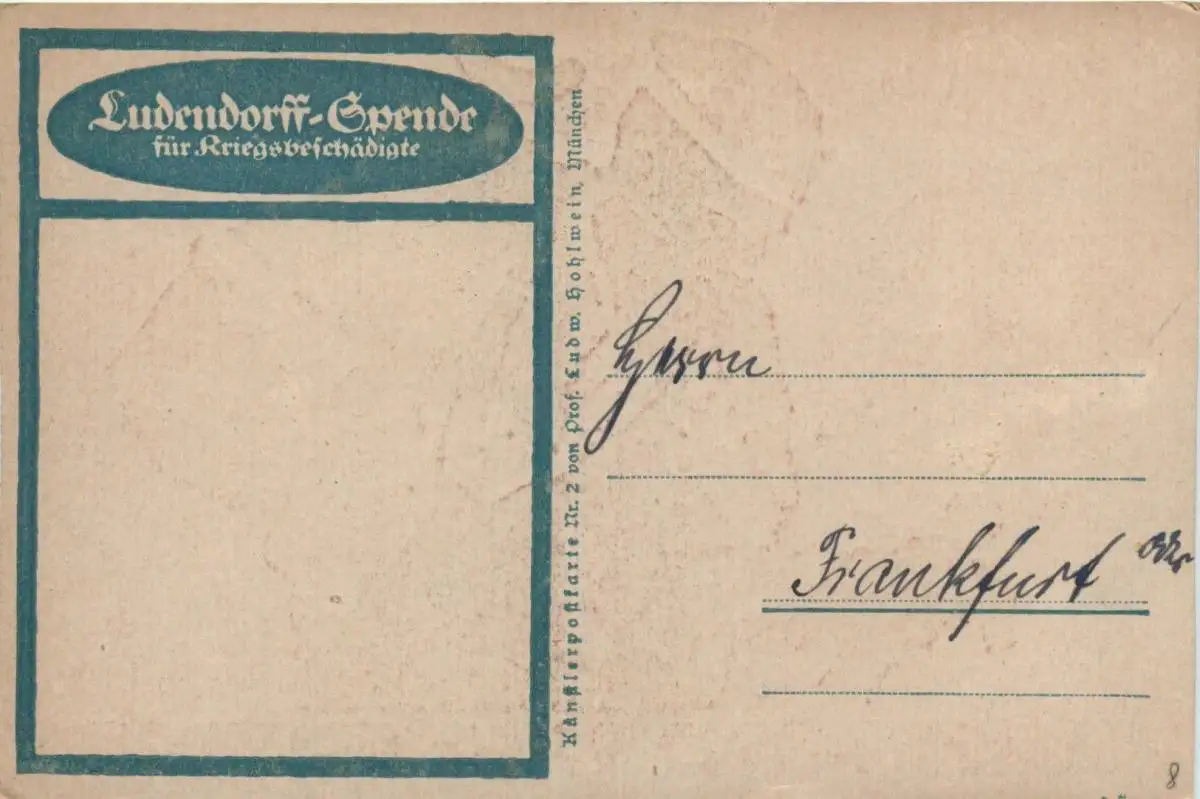 Ludendorff-Spende
für Kriegsbeschädigte
Künstlerpostkarte Nr. 2 von Prof. Ludw. Hohlwein, München
Herrn
Frankfurt Oder
8